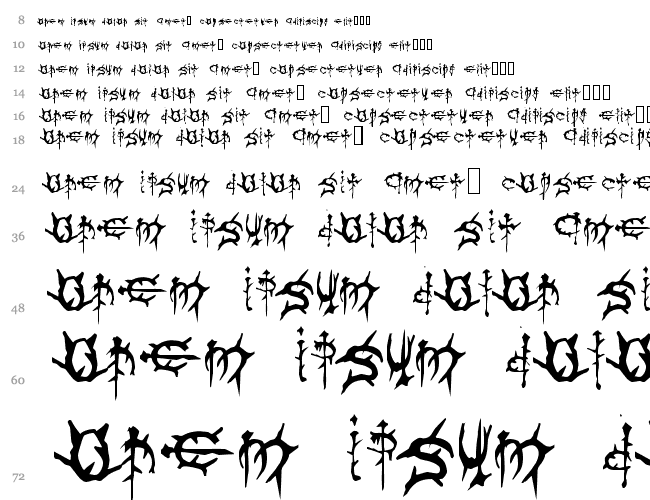 8 Lorem ipsum dolor sit amet, consectetuer adipiscing elit
10 Lorem ipsum dolor sit amet, consectetuer adipiscing elit
12 Lorem ipsum dolor sit amet, consectetuer adipiscing elit
14 Lorem ipsum dolor sit amet, consectetuer adipiscing elit
16 Lorem ipsum dolor sit amet, consectetuer adipiscing elit
18 Lorem ipsum dolor sit amet, consectetuer adipiscing
24 Lorem ipsum dolor sit amet, consecte
36 Lorem ipsum dolor sit ame
48 Lorem ipsum dolor si
60 Lorem ipsum dolo
72 Lorem ipsum d